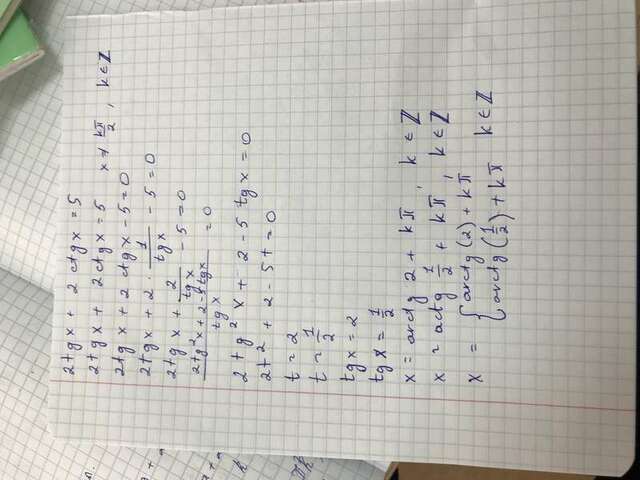 2tgx + 2ctgx = 5
2tgx + 2ctgx = 5   x ≠ kπ/2, k ∈ Z
2tgx + 2ctgx - 5 = 0
2tgx + 2 · 1/tgx - 5 = 0
2tgx + 2/tgx - 5 = 0
2tg²x + 2 - 5tgx / tgx = 0
2tg²x + 2 - 5tgx = 0
2t² + 2 - 5t = 0
t = 2
t = 1/2
tgx = 2
tgx = 1/2
x = arctg 2 + kπ, k ∈ Z
x = arctg 1/2 + kπ, k ∈ Z
x = { arctg(2) + kπ
arctg(1/2) + kπ   k ∈ Z